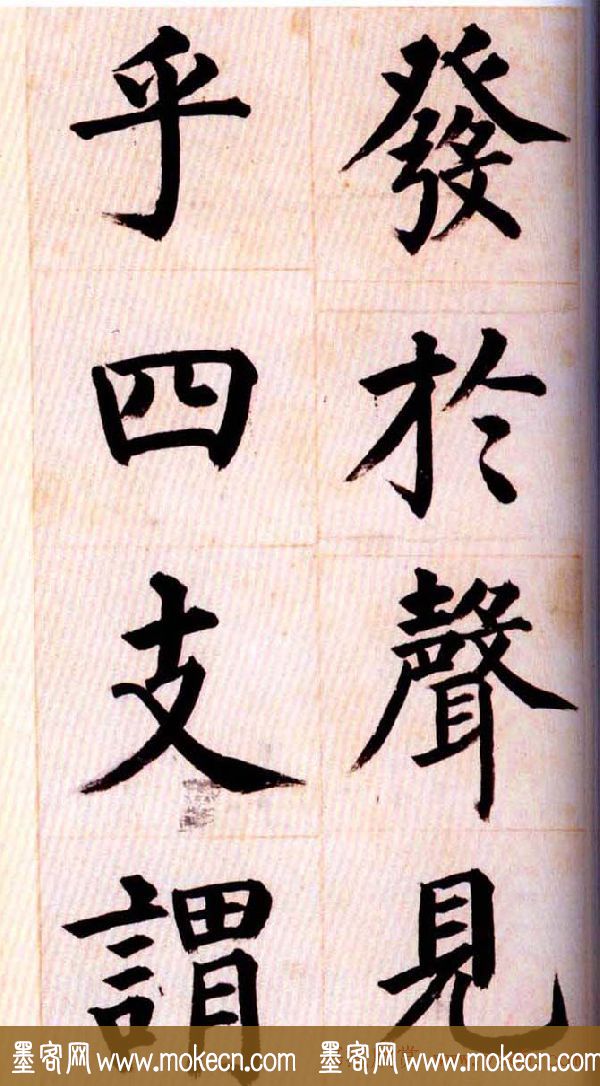 發於聲見
乎四支謂
墨客网 www.mokecn.com 墨客网 www.mokecn.com